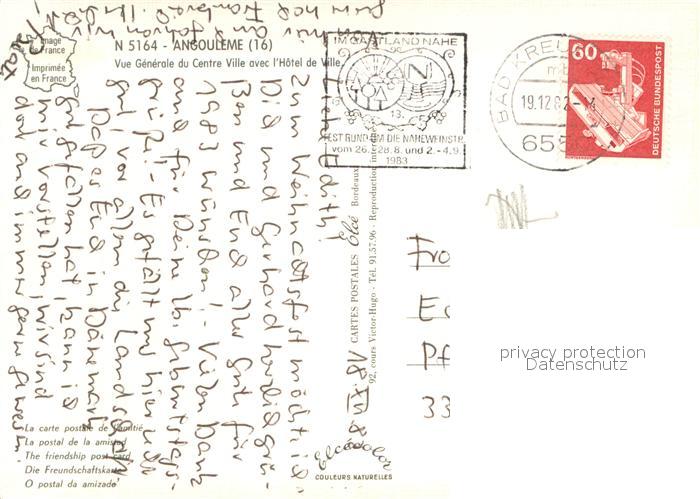 N 5164 - ANGOULEME (16)
Vue Générale du Centre Ville avec l'Hôtel de Ville
Image
de France
Imprimée
en France
IM GASTLAND NAHE
13.
FEST RUND UM DIE NAHEWEINSTR.
vom 26.-28.8. und 2.-4.9.
1983
BAD KREUZ
19.12.82
655
60
DEUTSCHE BUNDESPOST
Zum Weihnachtsfest möchte ich
Dich und Gerhard herzlich grü-
ßen und Euch alles Gute für
1983 wünschen! - Vielen Dank
auch für Deine lb. Geburtstags-
grüße. - Es gefällt uns hier sehr
gut, vor allem die Landschaft.
Daß es Euch in Dänemark
gut gefallen hat, kann ich
mir vorstellen, wir sind
dort auch immer gern gewesen.
CARTES POSTALES Elcé Bordeaux
92, cours Victor-Hugo - Tél. 91.57.96 - Reproduction interdite
Elcécolor
COULEURS NATURELLES
Fra
Pf
33
privacy protection
Datenschutz
La carte postale de l'amitié
La postal de la amistad
The friendship post card
Die Freundschaftskarte
O postal da amizade